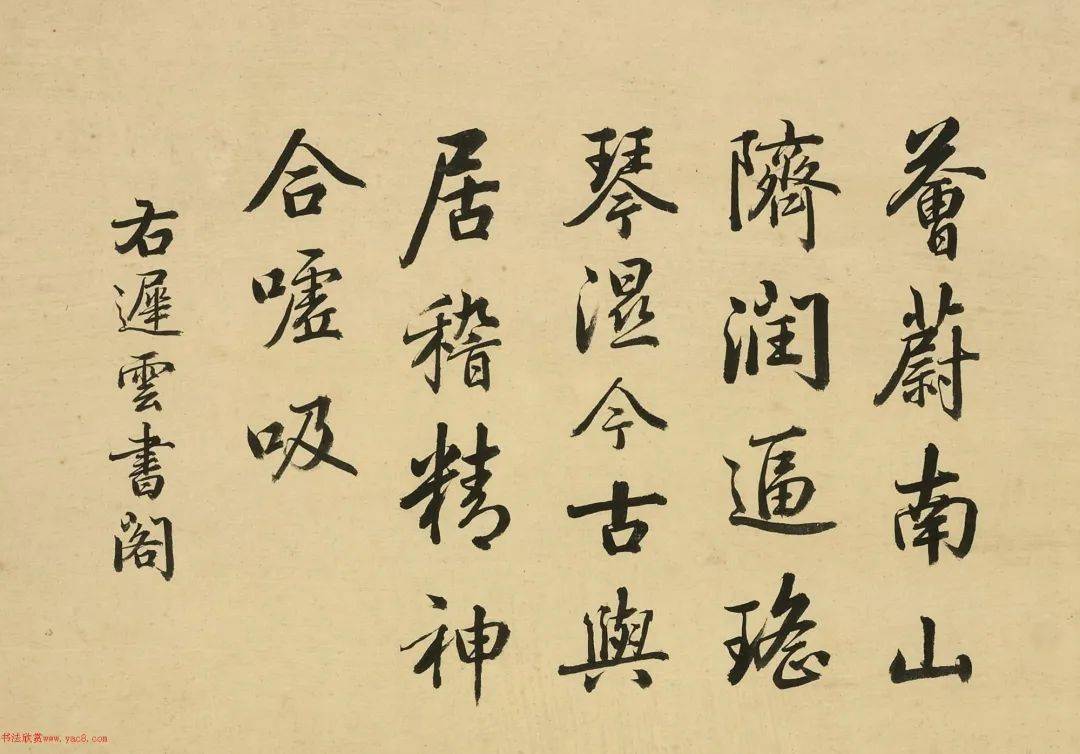 薈蔚南山
隮潤逼瑤
琴濕今古與
居稽精神
合噓吸
右遲雲書閣
书法欣赏www.yac8.com